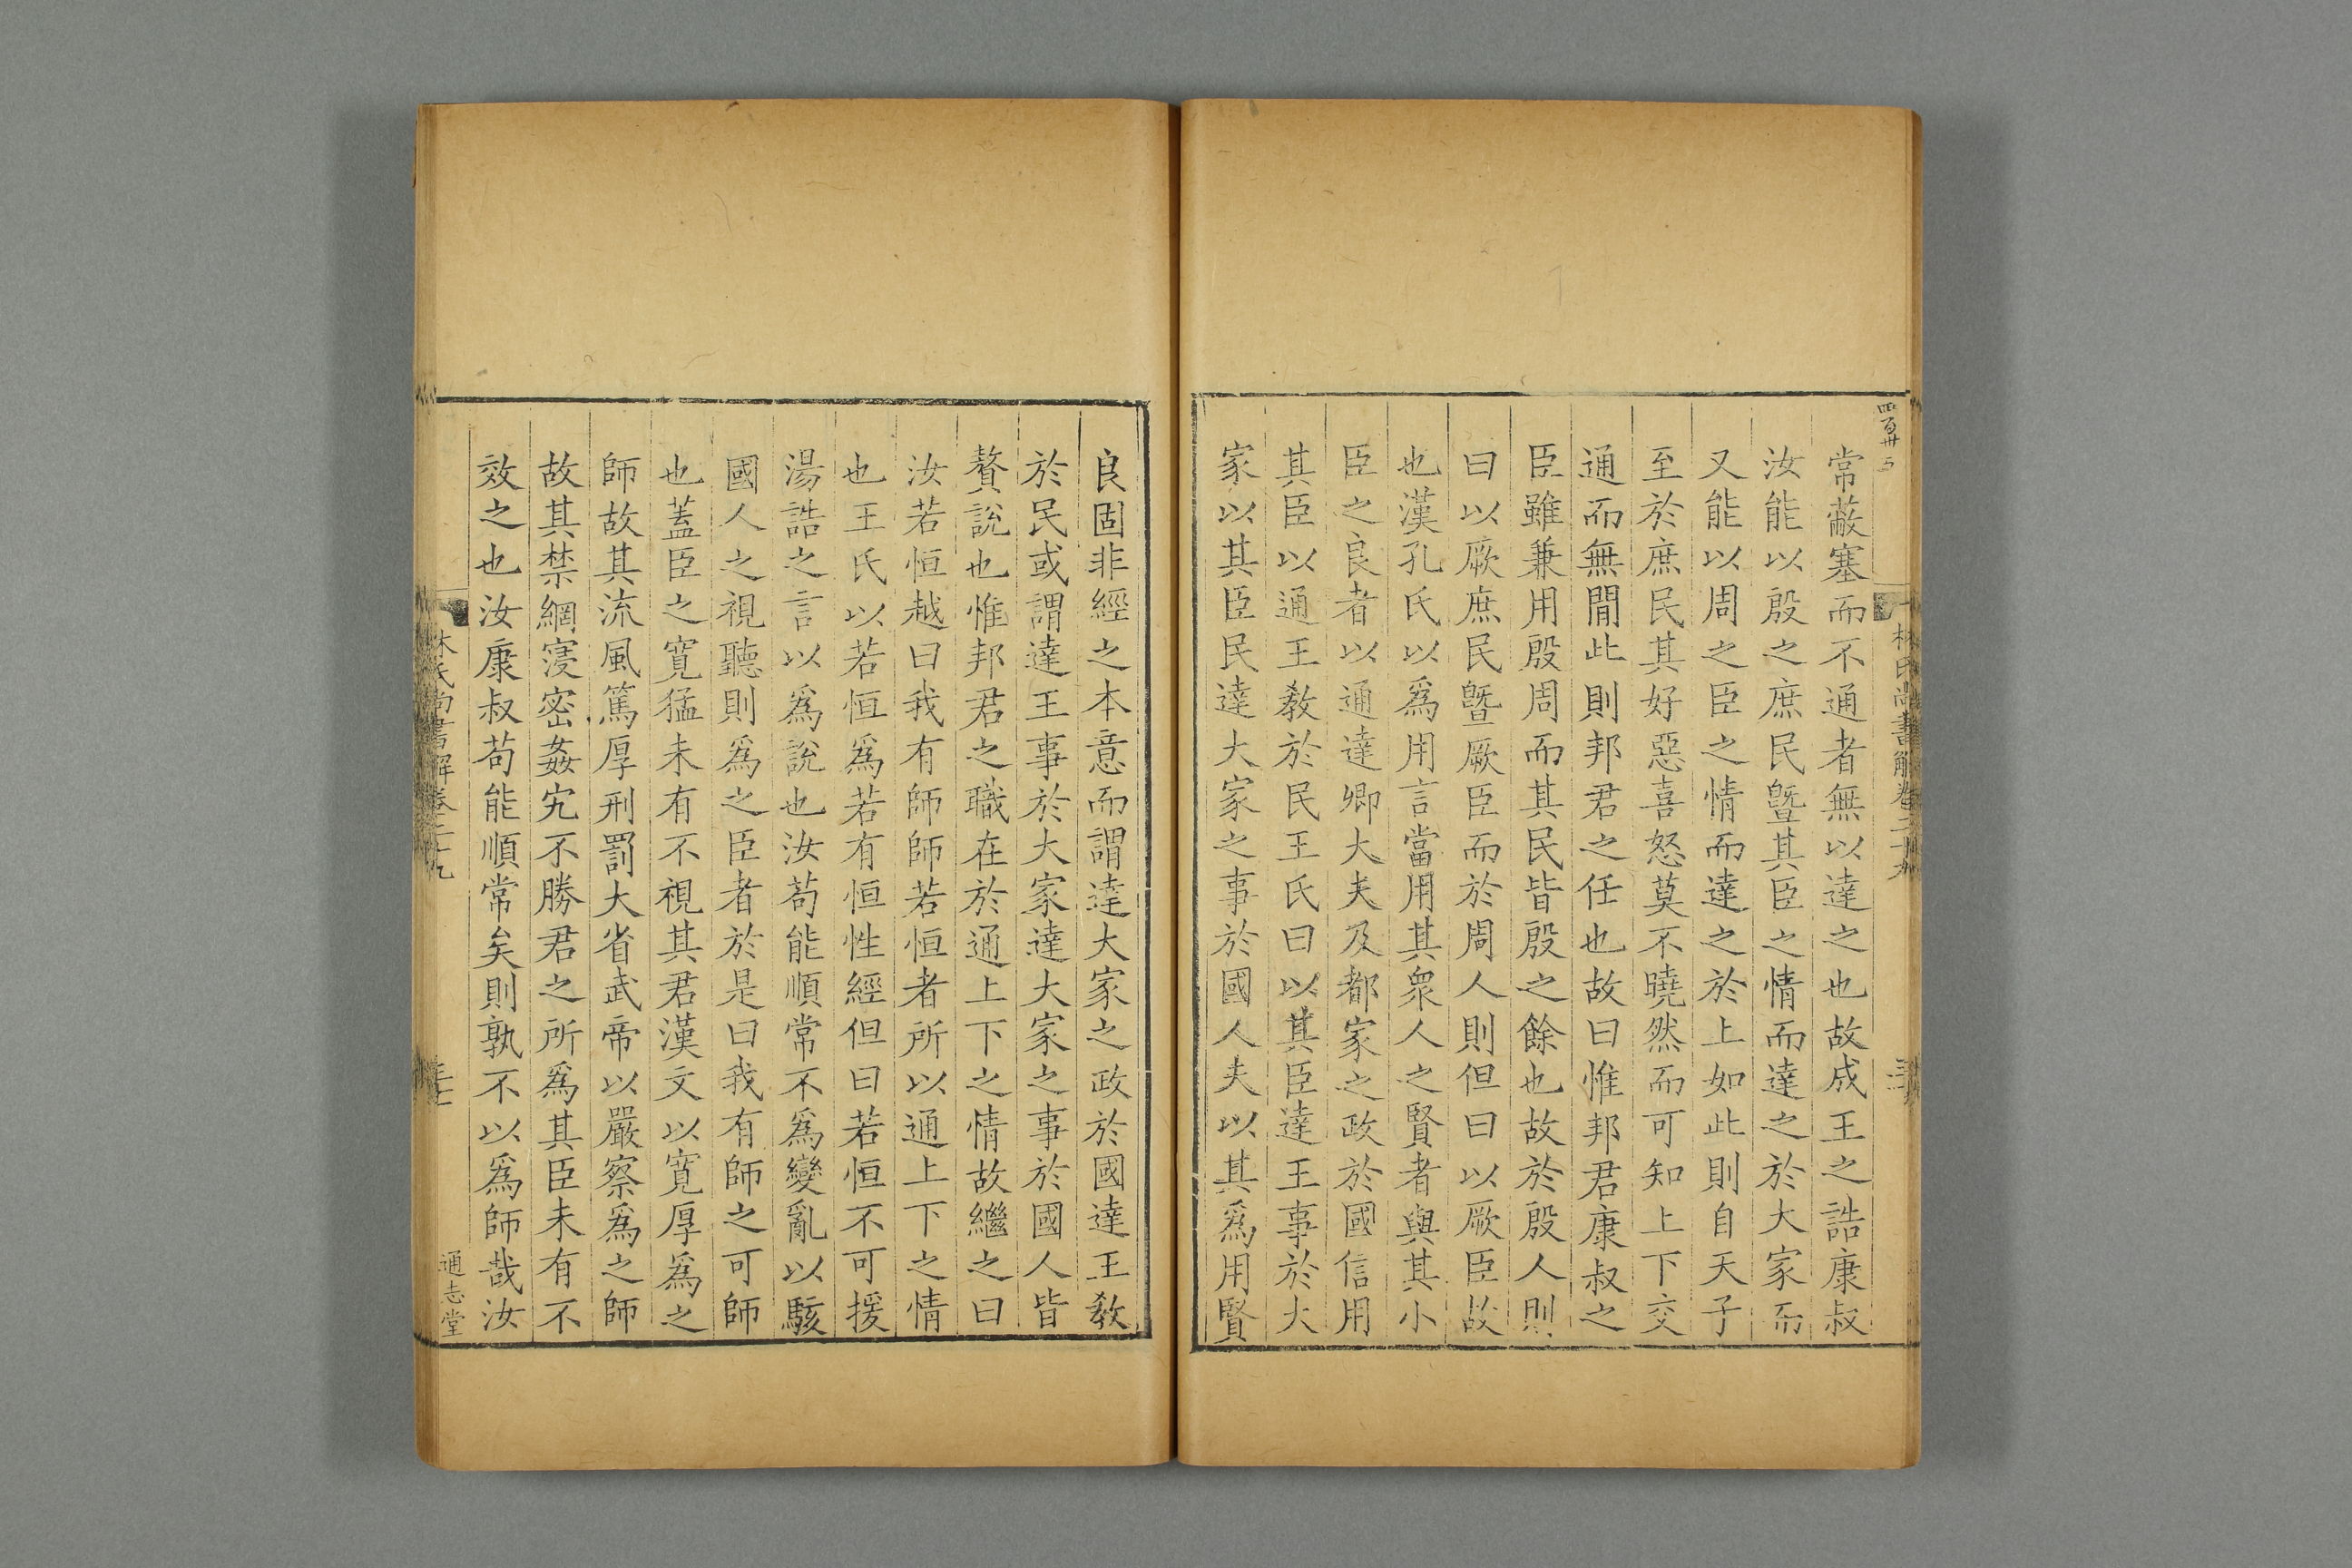 常蔽塞而不通者無以達之也故成王之誥康叔
汝能以殷之庶民曁其臣之情而達之於大家而
又能以周之臣之情而達之於上如此則自天子
至於庶民其好惡喜怒莫不曉然而可知上下交
通而無間此則邦君之任也故曰惟邦君康叔之
臣雖兼用殷周而其民皆殷之餘也故於殷人則
曰以厥庶民曁厥臣而於周人則但曰以厥臣故
也漢孔氏以爲用言當用其衆人之賢者與其小
臣之良者以通達卿大夫及都家之政於國信用
其臣以通王敎於民王氏曰以其臣達王事於大
家以其臣民達大家之事於國人夫以其爲用賢
良固非經之本意而謂達大家之政於國達王敎
於民或謂達王事於大家達大家之事於國人皆
贅說也惟邦君之職在於通上下之情故繼之曰
汝若恒越曰我有師師若恒者所以通上下之情
也王氏以若恒爲若有恒性經但曰若恒不可援
湯誥之言以爲說也汝苟能順常不爲變亂以駭
國人之視聽則爲之臣者於是曰我有師之可師
也蓋臣之寬猛未有不視其君漢文以寬厚爲之
師故其流風篤厚刑罰大省武帝以嚴察爲之師
故其禁網寖密姦宄不勝君之所爲其臣未有不
效之也汝康叔苟能順常矣則孰不以爲師哉汝
林氏尚書解卷二十九
通志堂